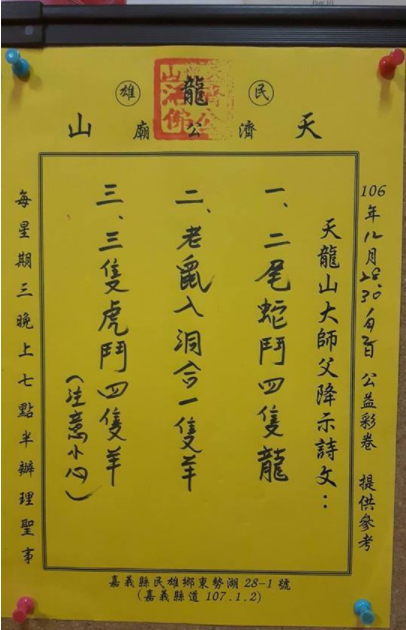 民龍雄
天濟公廟山
106年12月28.30 公益彩卷 提供參考
天龍山大師父降示詩文：
一、二尾蛇鬥四隻龍
二、老鼠入洞合一隻羊
三、三隻虎鬥四隻羊
(注意小心)
每星期三晚上七點半辦理聖事
嘉義縣民雄鄉東勢湖28-1號
(嘉義縣道107.1.2)